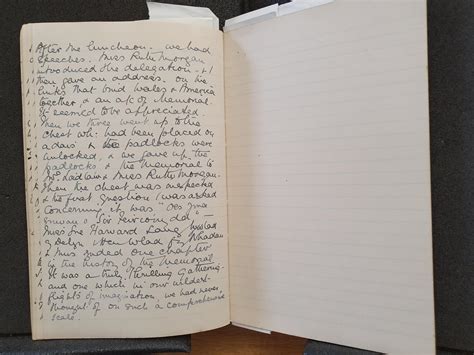 After the luncheon - we had
speeches. Miss Ruth Morgan
introduced the delegation - & I
then gave an address. on the
links that bind Wales & America
together & an a/c of Memorial.
It seemed to be appreciated.
Then we three went up to the
chest wh: had been placed on
a dais & the padlocks were
unlocked, & we gave up the
padlocks & the Memorial to
Mrs & Miss Ruth Morgan.
Then the chest was inspected
& the first question I was asked
concerning it was "Oes
o Sir
Miss Howard
Hen wlad fy Nhadau
& thus ended one chapter
in the history of the Memorial
It was a truly thrilling gathering
and one which in our wildest
flights of imagination, we had never
thought of on such a comprehensive
scale.